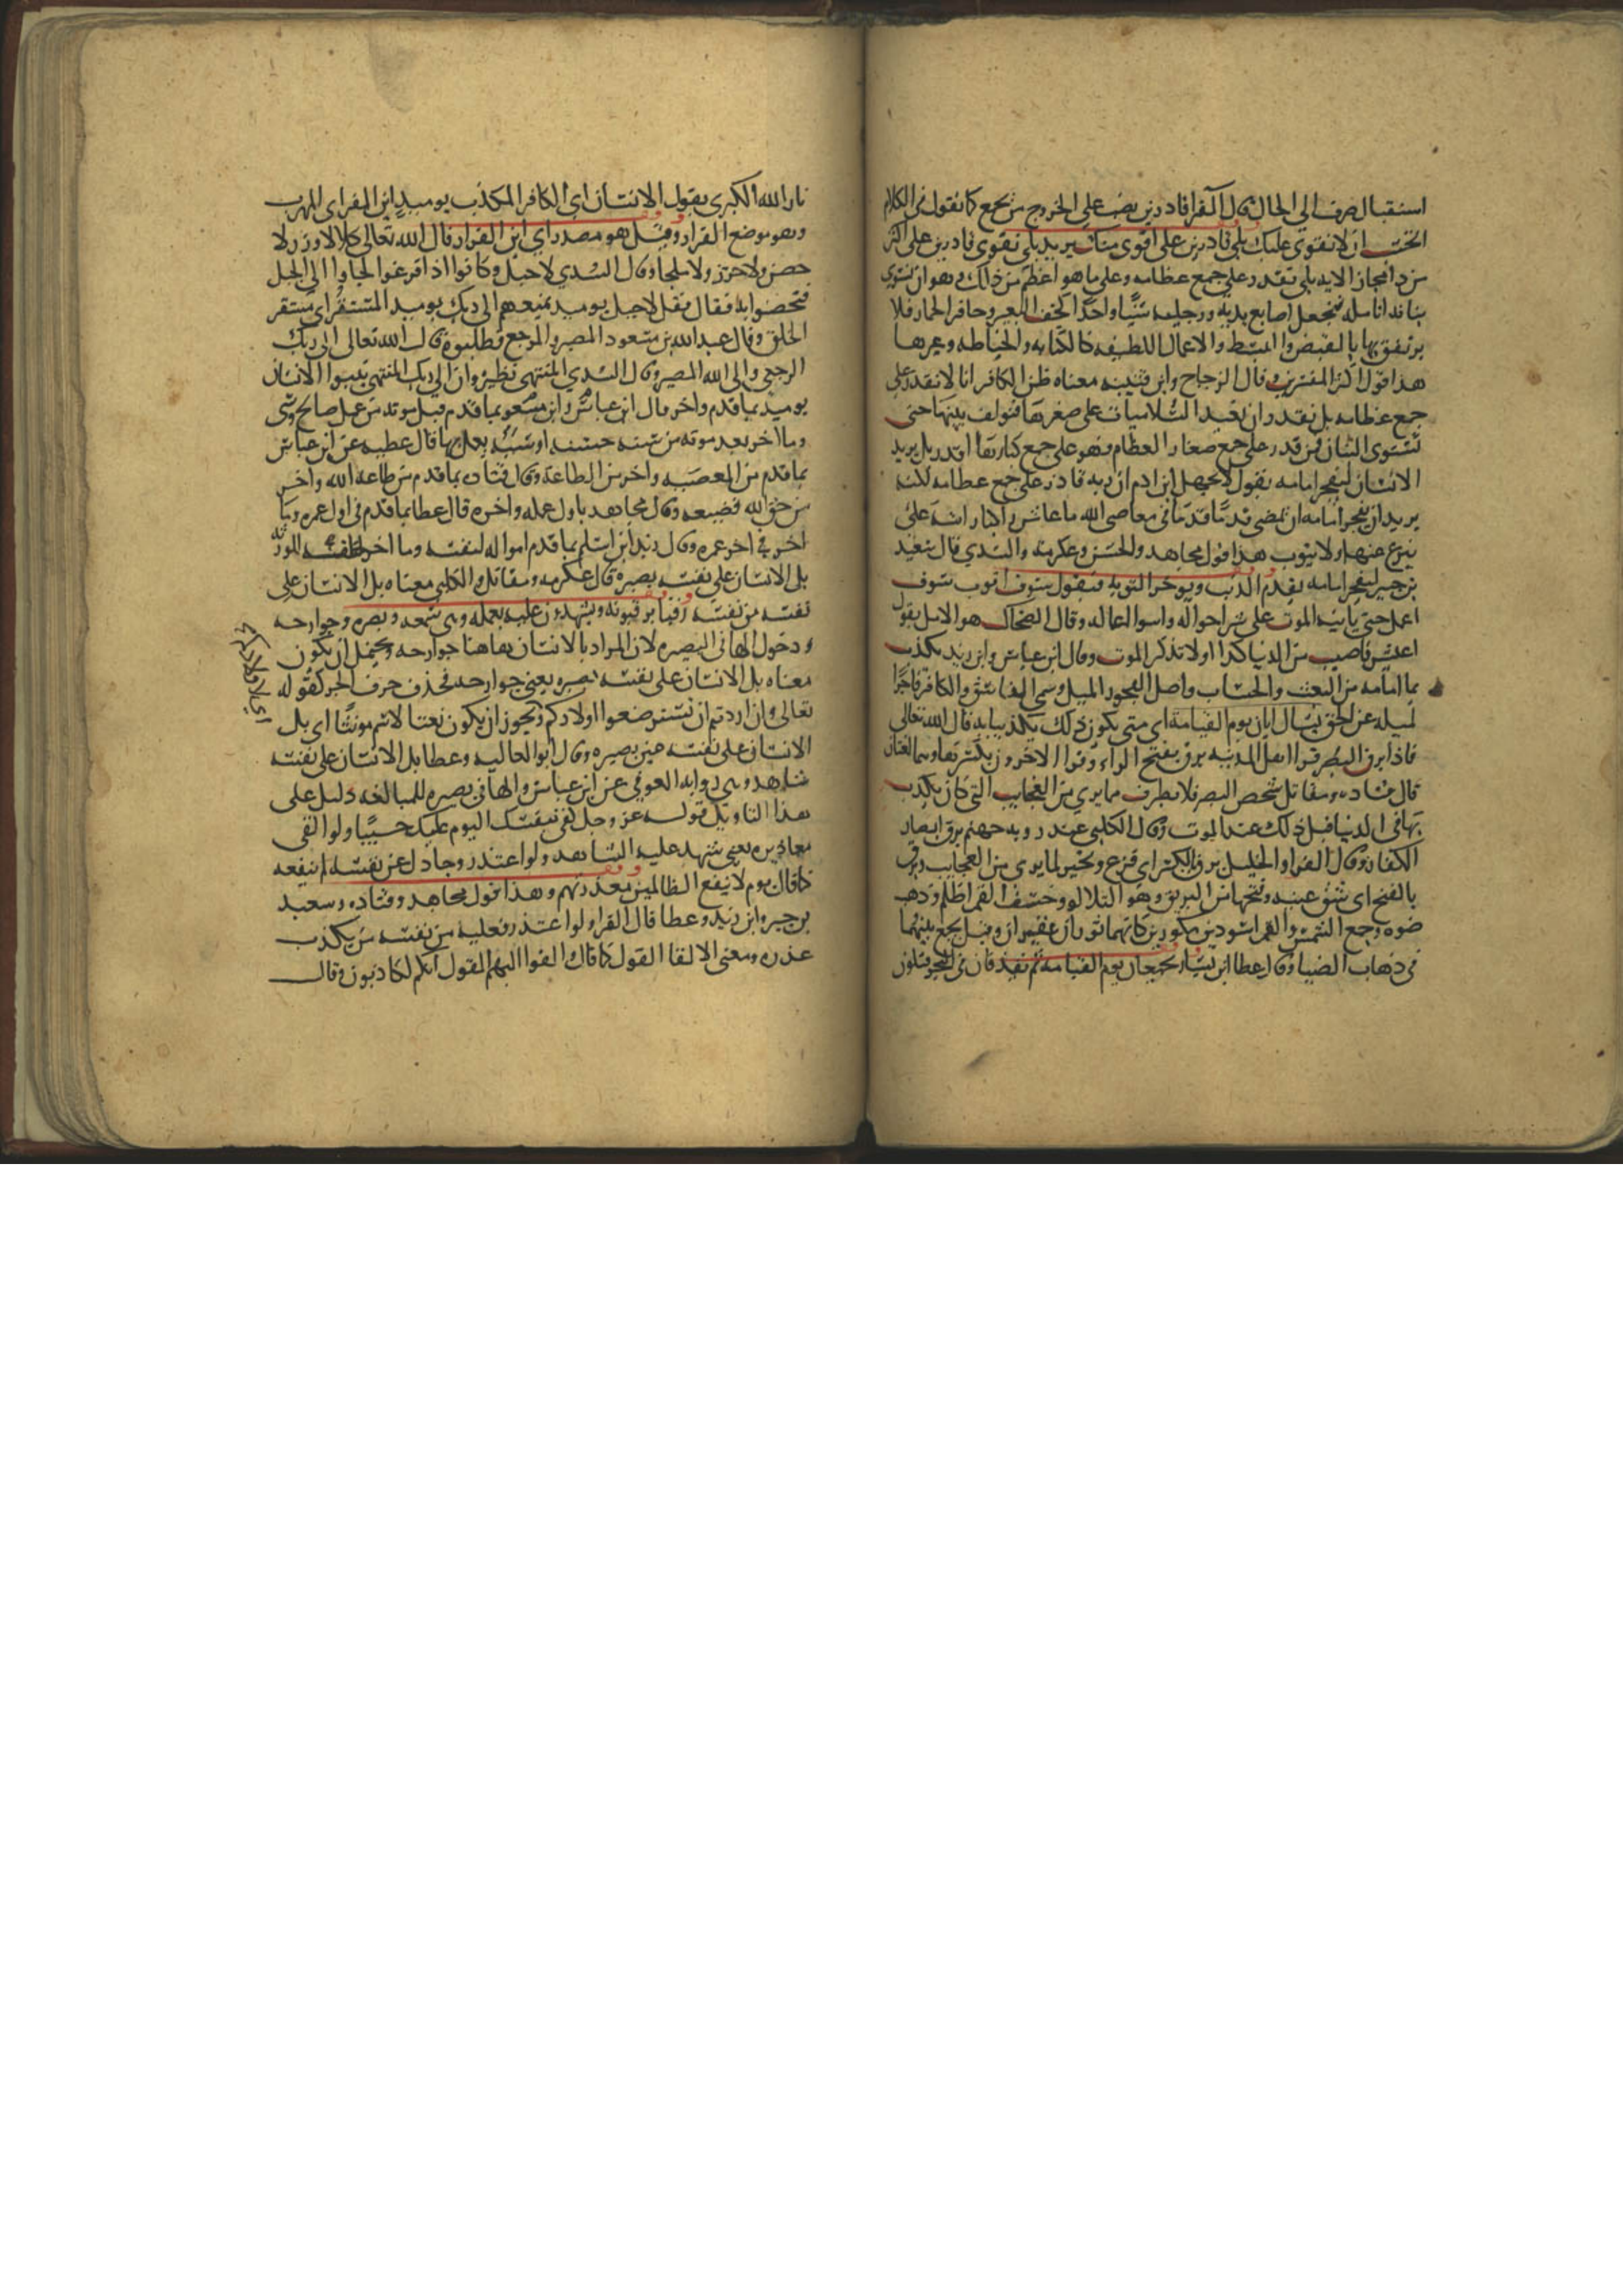 استقبال صرف الي الحال قال الفرا قادرين نصب على الخروج من نجمع كما نقول في الكلام
اتحسب ان لا نقوي عليك بلى قادرين على اقوى منك يريد بلى نقوى قادرين على اكثر
من ذا مجاز الايه بلى نقدر على جمع عظامه وعلى ما هو اعظم من ذلك وهو ان نسوى
بنانه انامله فنجعل اصابع يديه ورجليه شيًا واحدًا كخف البعير وحافر الحمار فلا
يرتفق بها بالقبض والبسط والاعمال اللطيفه كالكتابه والخياطه وغيرها
هذا قول اكثر المفسرين وقال الزجاج وابن قتيبه معناه ظن الكافر انا لا نقدر على
جمع عظامه بل نقدر ان نعيد السلاميات على صغرها فنولف بينها حتى
تستوى البنان فمن قدر على جمع صغار العظام فهو على جمع كبارها اقدر بل يريد
الانسان ليفجر امامه يقول لا يجهل ابن ادم ان ربه قادر على جمع عظامه لكنه
يريد ان يفجر امامه ان يمضي قدمًا قدمًا في معاصى الله ما عاش راكبا راسه لا
ينزع عنها ولا يتوب هذا قول مجاهد والحسن وعكرمة والسدي قال سعيد
بن جبير ليفجر امامه يقدم الذنب ويوخر التوبه فيقول سوف اتوب سوف
اعمل حتى ياتيه الموت على شر احواله واسوا اعماله وقال الضحاك هو الامل يقول
اعيش فاصيب من الدنيا كذا ولا تذكر الموت وقال ابن عباس وابن زيد يكذب
بما امامه من البعث والحساب واصل الفجور الميل وسمى الفاسق والكافر فاجرًا
لميله عن الحق يسال ايان يوم القيامة اى متى يكون ذلك يكذبا به قال الله تعالى
فاذا برق البصر قرا اهل المدينه برق بفتح الراء وقرا الاخرون بكسرها وهما لغتان
قال قتاده ومقاتل شخص البصر فلا يطرف مما يرى من العجايب التي كان يكذب
بها في الدنيا قيل ذلك عند الموت وقال الكلبي عند روية جهنم برق ابصار
الكفار وقال الفرا والخليل برق بالكسر اى فزع وتحير لما يرى من العجايب وبرق
بالفتح اى شق عينه وفتحها من البريق وهو التلالو وخسف القمر اظلم وذهب
ضوه وجمع الشمس والقمر اسودين مكورين كانهما ثوران عقيران وقيل يجمع بينهما
فى ذهاب الضيا وقال عطا ابن يسار يجمعان يوم القيامه ثم يقذفان في البحر فيكون
نار الله الكبرى يقول الانسان اى الكافر المكذب يوميذ اين المفر اى المهرب
وهو موضع الفرار وقيل هو مصدر اي اين الفرار قال الله تعالى كلا لا وزر لا
حصن ولا حرز ولا ملجا وقال السدي لا جبل وكانوا اذا فزعوا لجاوا الى الجبل
فتحصنوا به فقال فقل لا جبل يوميذ يمنعهم الى ربك يوميذ المستقر اى مستقر
الخلق وقال عبد الله بن مسعود المصير والمرجع قال الله تعالى الى ربك
الرجعى والى الله المصير وقال السدي المنتهى نظيره وان الى ربك المنتهى ينبوا الانسان
يوميذ بما قدم واخر قال ابن عباس وابن مسعود بما قدم قبل موته من عمل صالح وسى
وما اخر بعد موته من سنه حسنه او سيئه يعمل بها قال عطيه عن ابن عباس
بما قدم من المعصيه واخر من الطاعة وقال قتاده بما قدم من طاعة الله واخر
من حق الله فضيعه وقال مجاهد باول عمله واخره قال عطا بما قدم في اول عمره وما
اخر في اخر عمره وقال زيد ابن اسلم بما قدم امواله لنفسه وما اخر خلفه للورثه
بل الانسان على نفسه بصيره قال عكرمه ومقاتل والكلبي معناه بل الانسان على
نفسه من نفسه رقبا يرقبونه ويشهدون عليه بعمله وهى سمعه وبصره وجوارحه
ودخول الها في البصيره لان المراد بالانسان هاهنا جوارحه ويحتمل ان يكون
معناه بل الانسان على نفسه بصيره يعنى جوارحه فحذف حرف الجر كقوله
تعالى وان اردتم ان تسترضعوا اولادكم ويجوز ان يكون نعتا لاسم مونثا اى بل
اي لاولادكم
الانسان على نفسه عين بصيره وقال ابو العاليه وعطا بل الانسان على نفسه
شاهد وهى روايه العوفي عن ابن عباس والها في بصيره للمبالغه دليل على
هذا التاويل قوله عز وجل كفى بنفسك اليوم عليك حسيبًا ولو القى
معاذيره يعنى يشهد عليه الشاهد ولو اعتذر وجادل عن نفسه لم ينفعه
كما قال يوم لا ينفع الظالمين معذرتهم وهذا قول مجاهد وقتاده وسعيد
بن جبير وابن زيد وعطا قال الفرا ولو اعتذر فعليه من نفسه من يكذب
عذره ومعنى الالقا القول كما قال القوا اليهم القول انكم لكاذبون وقال